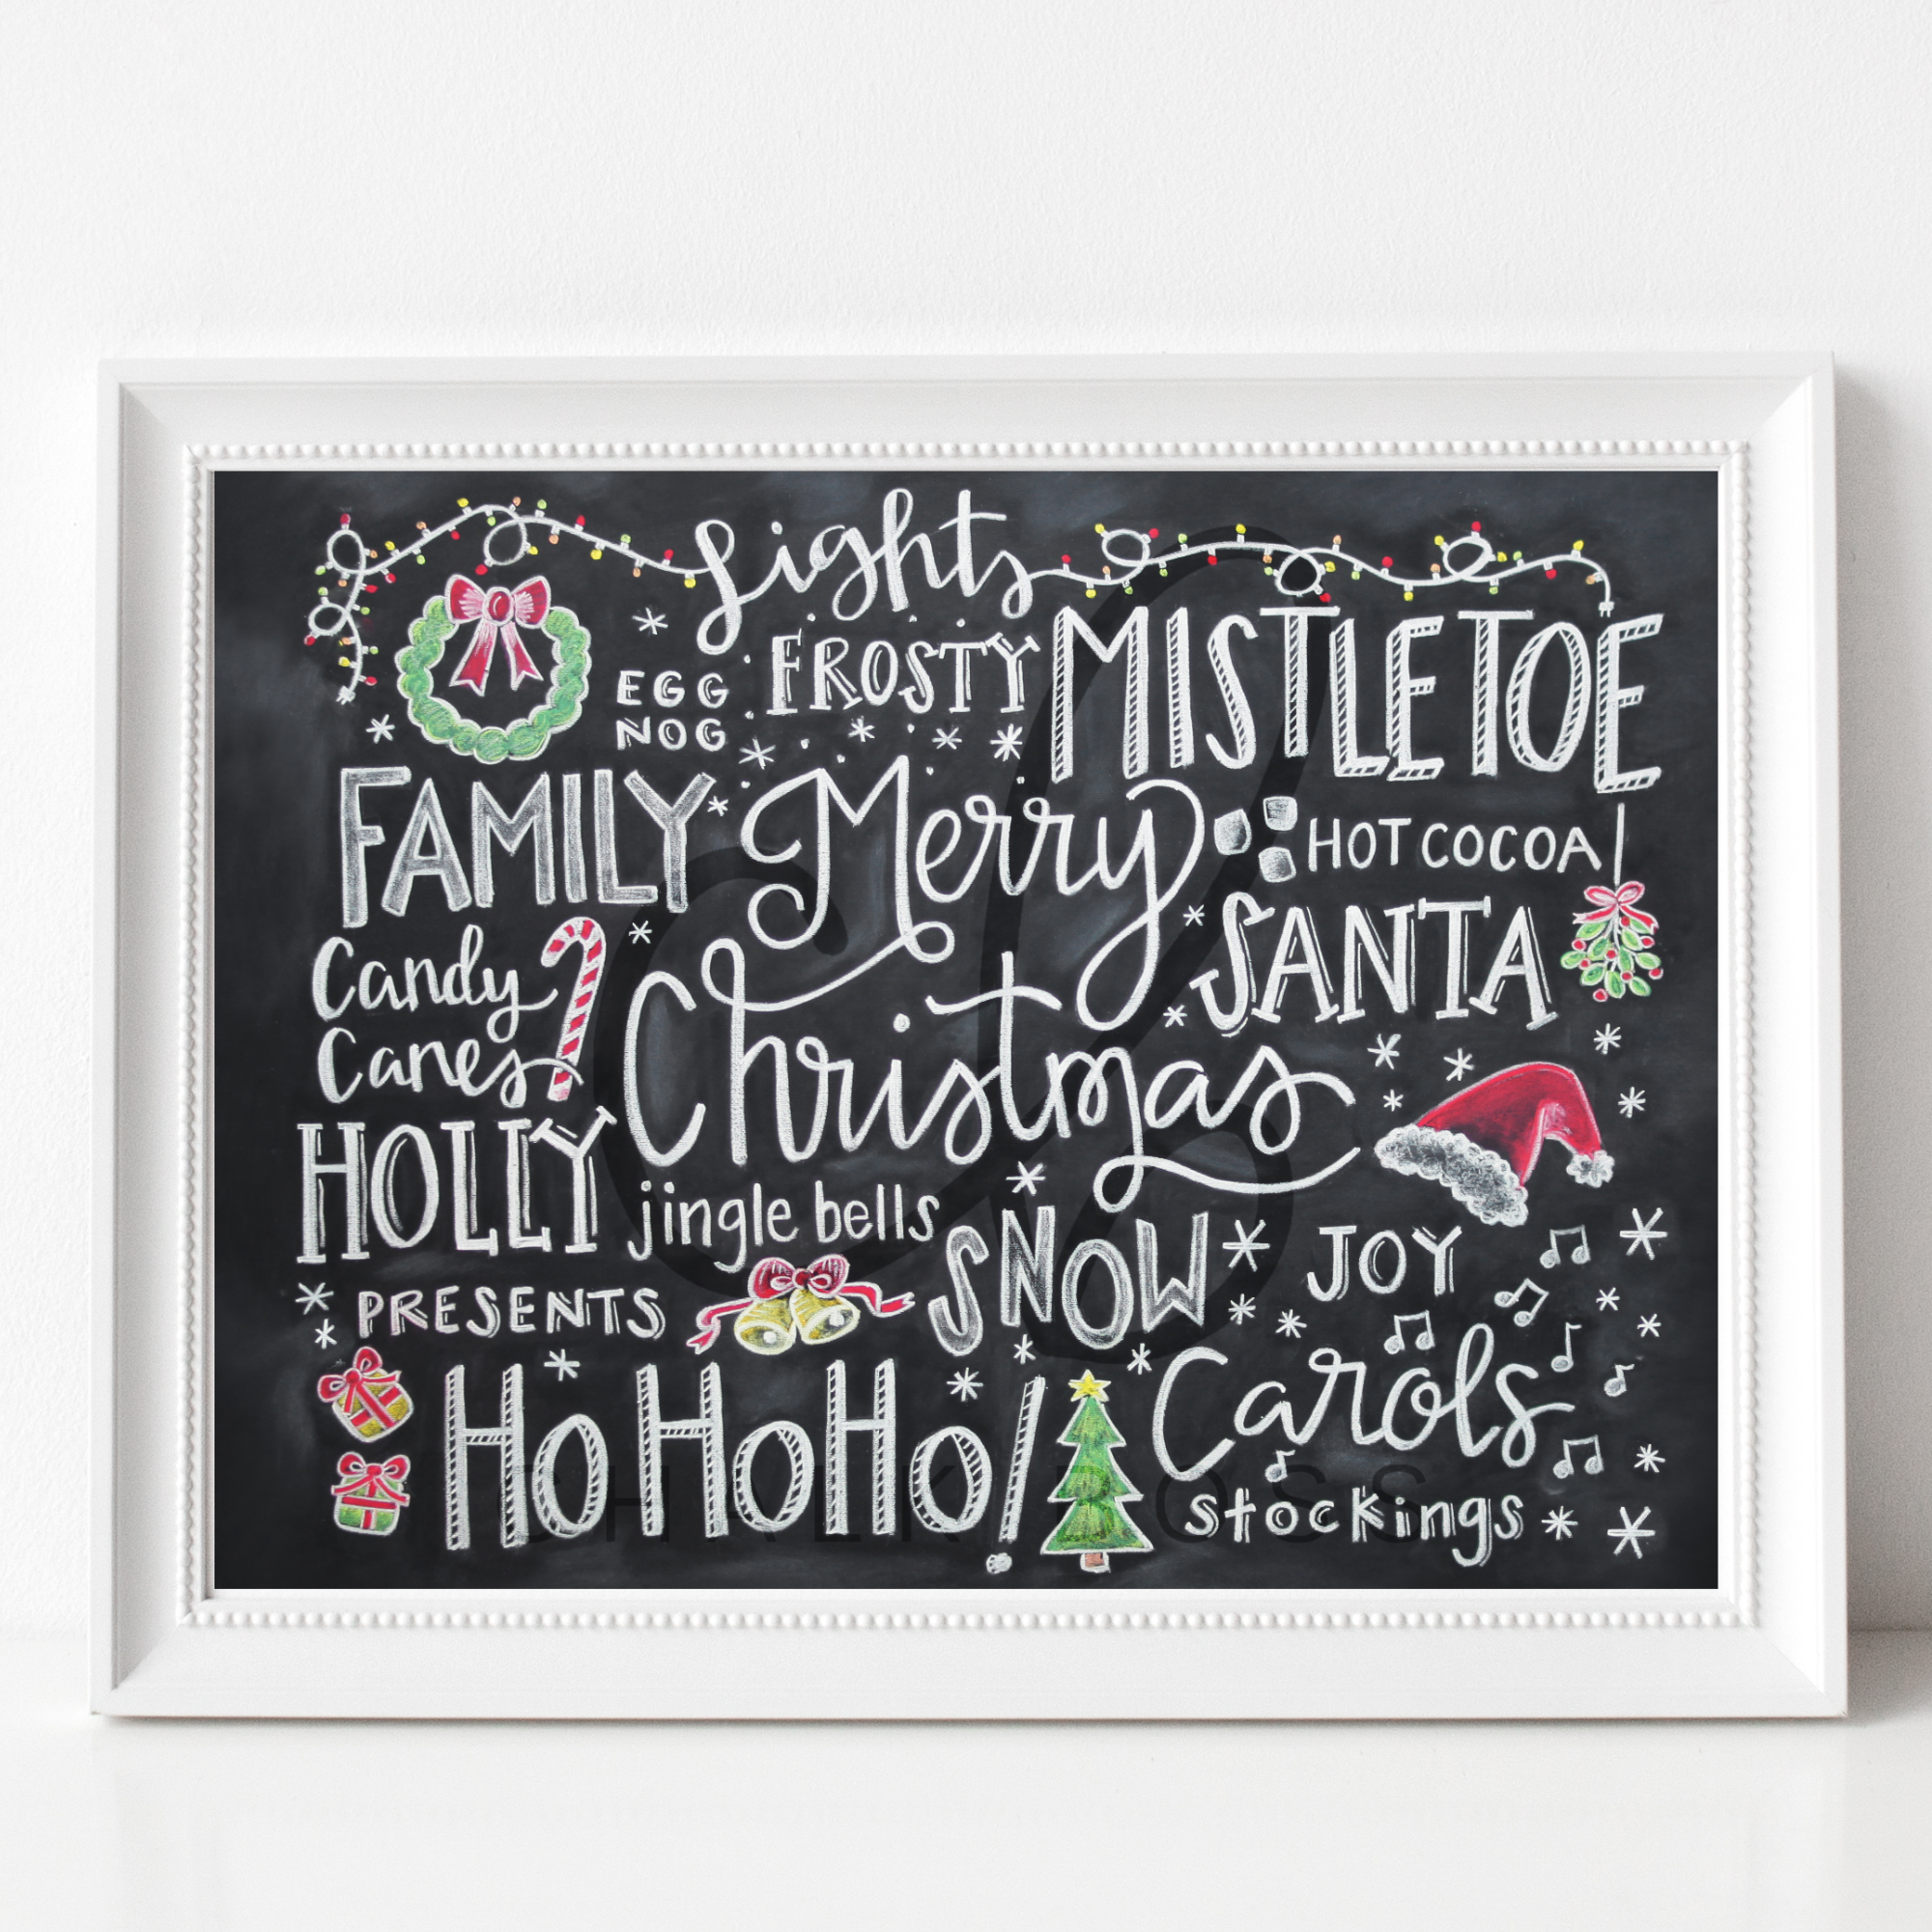 Lights
EGG
NOG
FROSTY
MISTLETOE
FAMILY
Merry
Christmas
HOT COCOA
SANTA
Candy
Canes
HOLLY
jingle bells
SNOW
JOY
PRESENTS
HoHoHo!
Carols
stockings
CHALK BOSS
cb